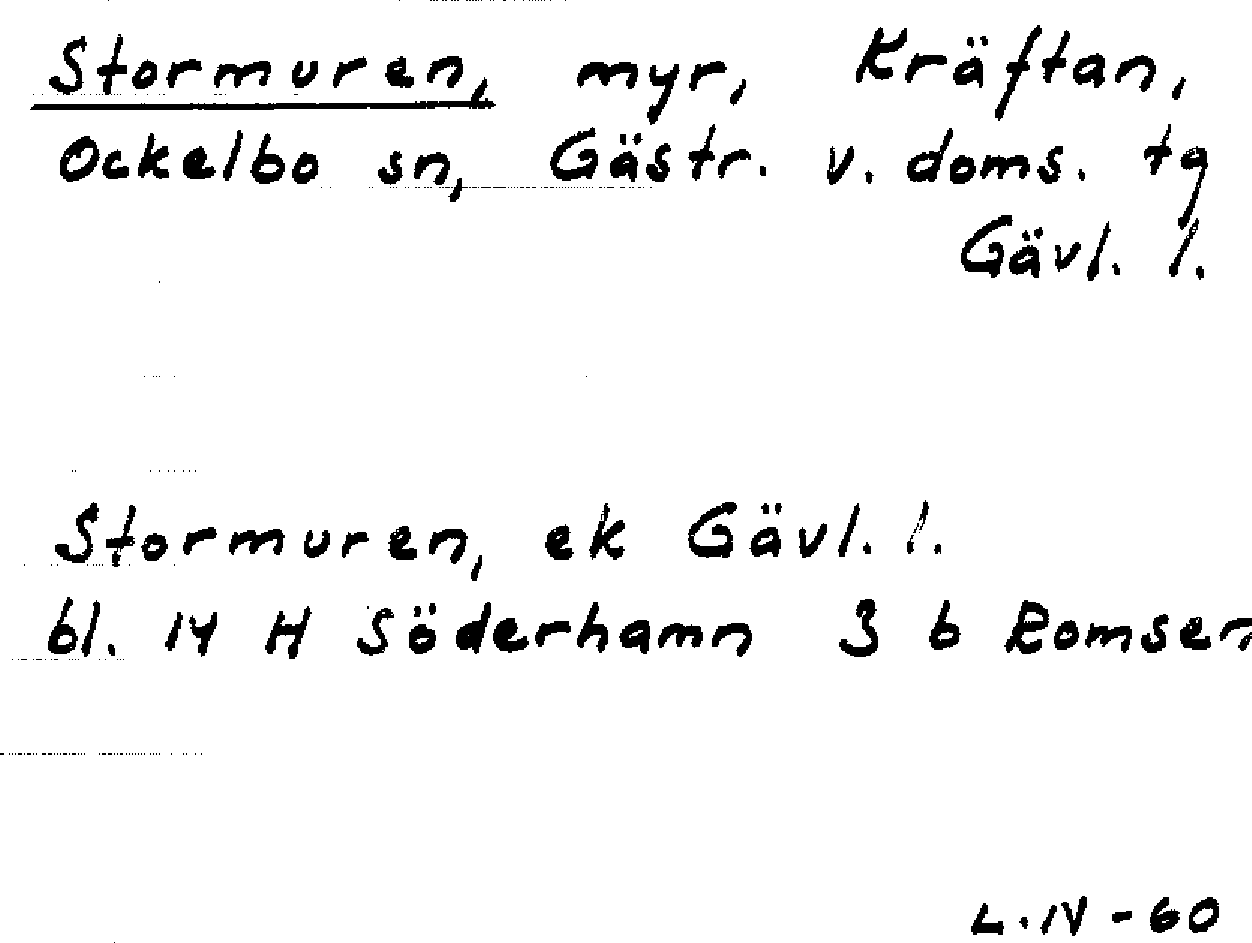 Stormuren, myr, Kräftan,
Ockelbo sn, Gästr. v. doms. tg
Gävl. l.
Stormuren, ek Gävl. l.
bl. 14 H Söderhamn 3 b Romsen
L. IV - 60